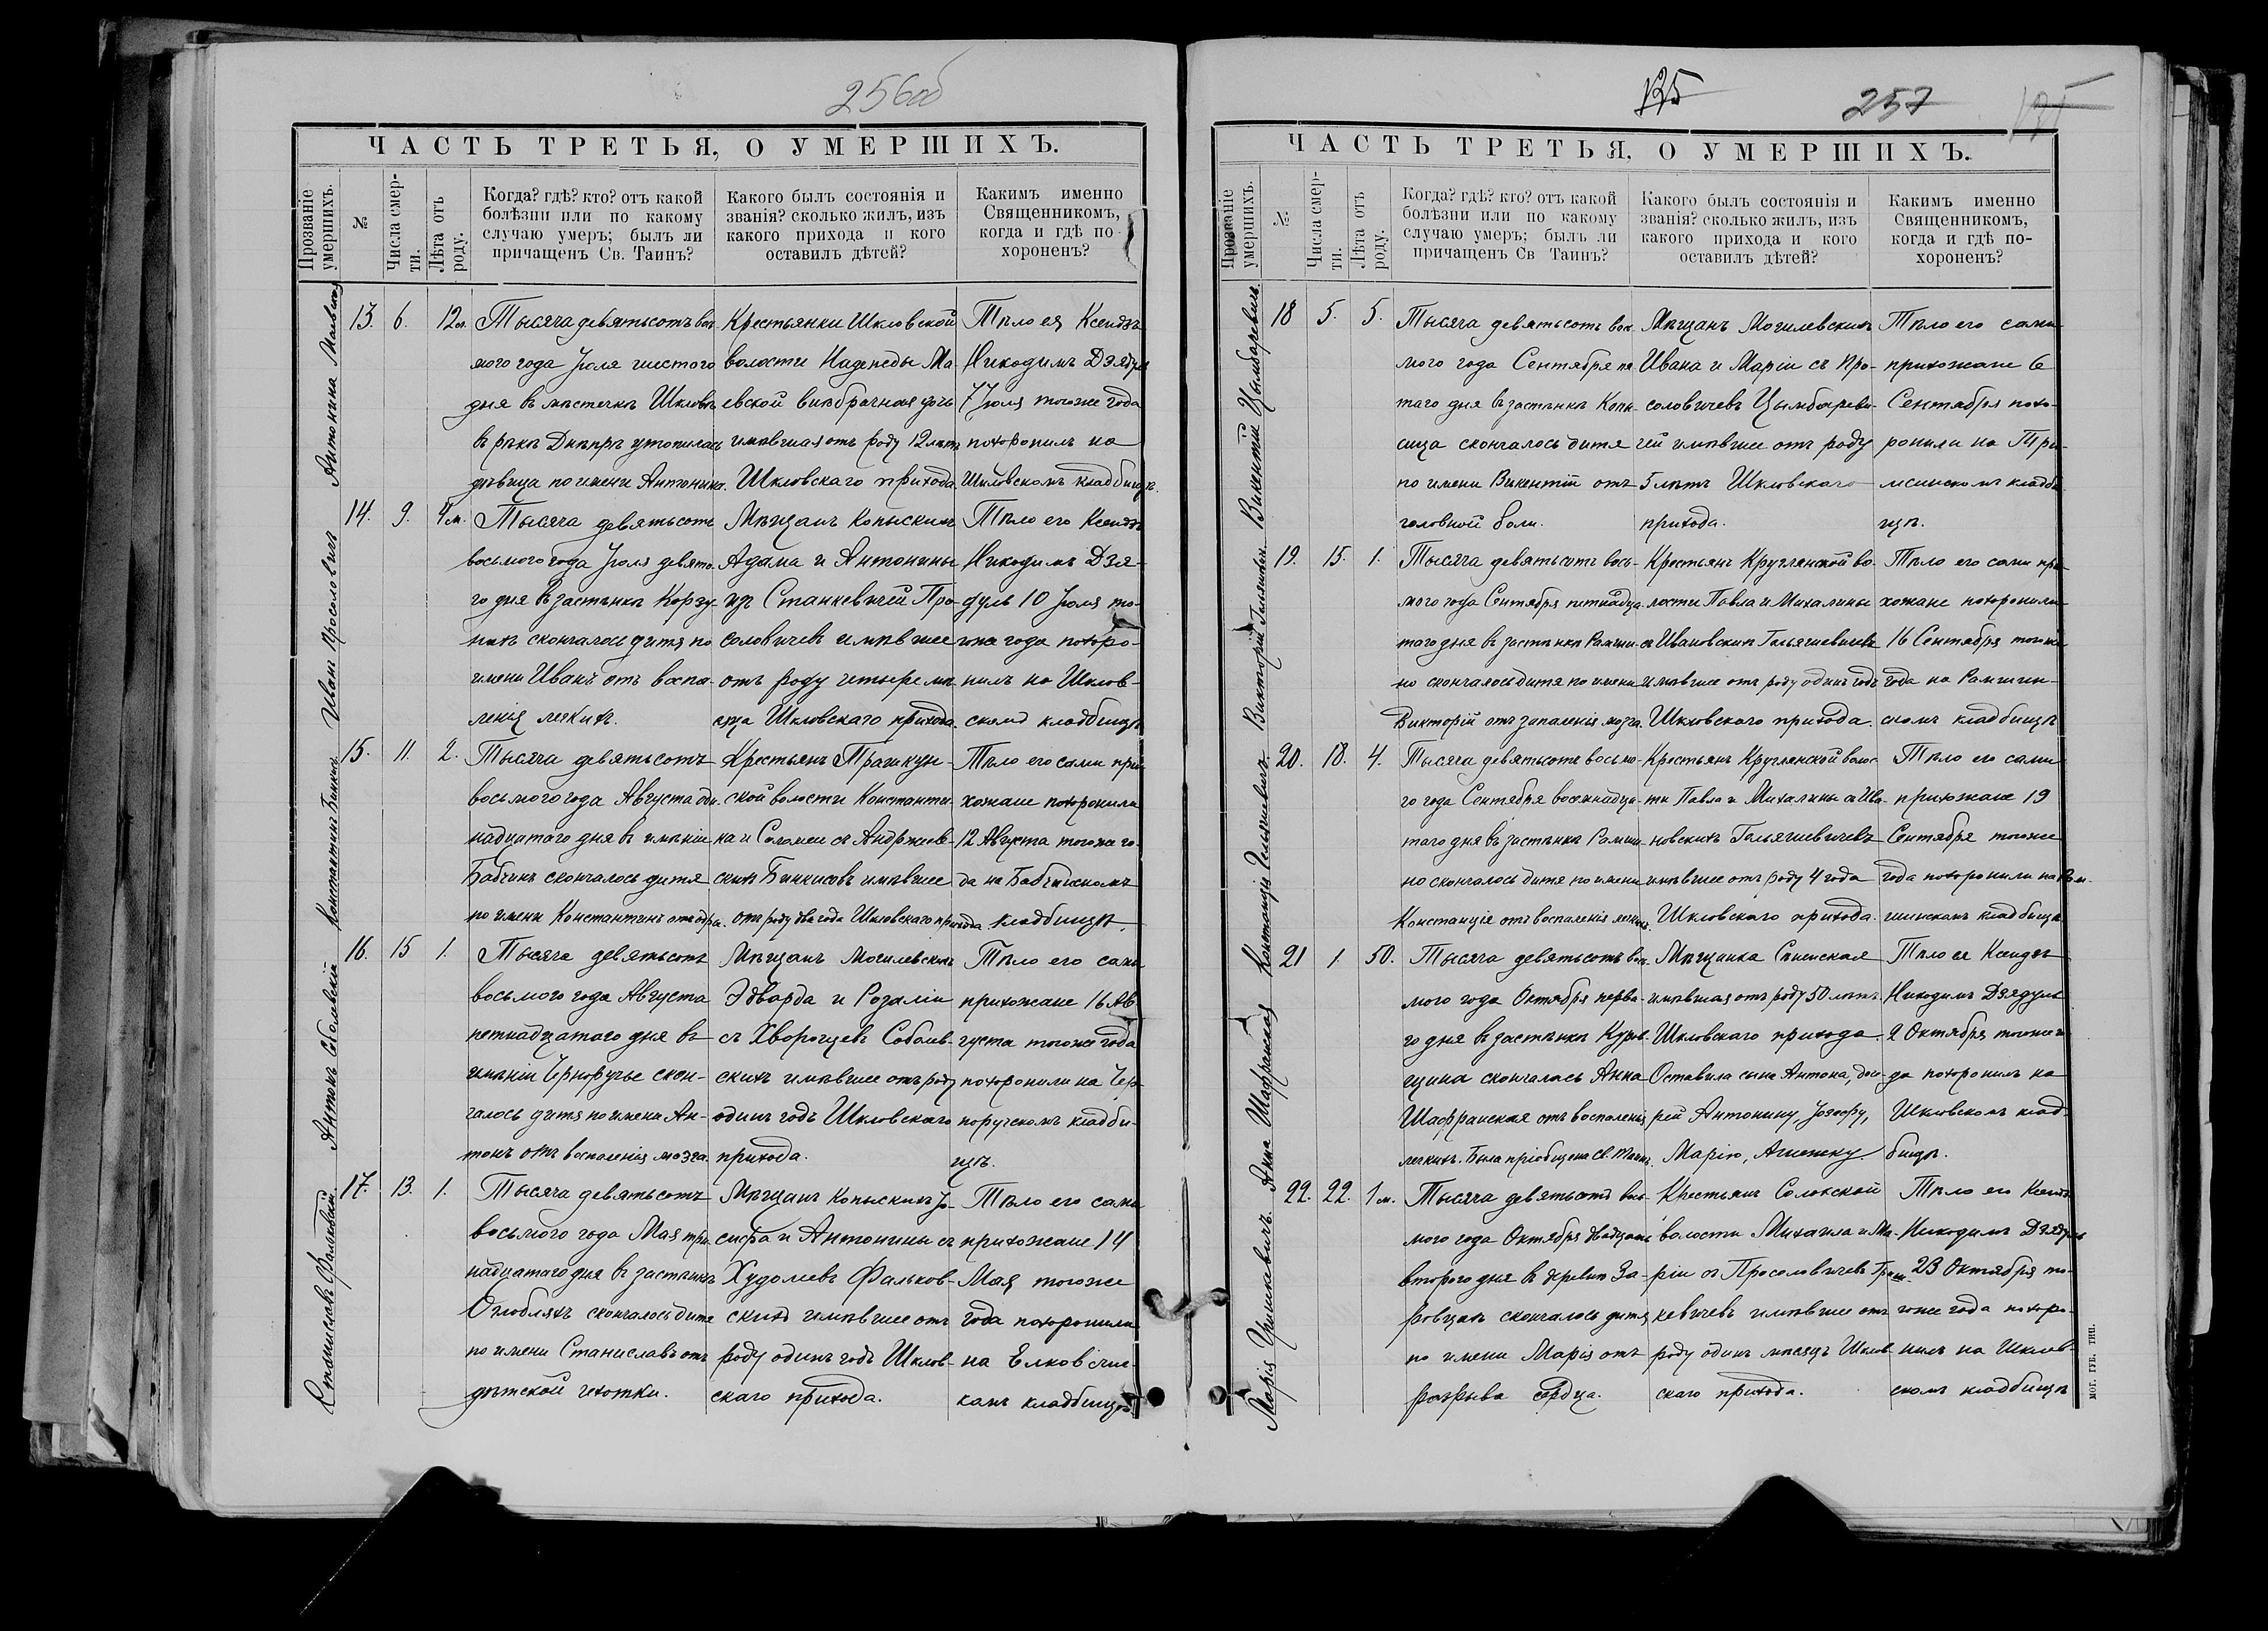 256об
ЧАСТЬ ТРЕТЬЯ, О УМЕРШИХЪ.
Прозваніе умершихъ.
№
Числа смерти.
Лѣта отъ роду.
Когда? гдѣ? кто? отъ какой
болѣзни или по какому
случаю умеръ; былъ ли
причащенъ Св. Таинъ?
Какого былъ состоянія и
званія? сколько жилъ, изъ
какого прихода и кого
оставилъ дѣтей?
Какимъ именно
Священникомъ,
когда и гдѣ по-
хороненъ?
Антонина
13. 6. 12
Тысяча девятьсотъ вось-
мого года Іюля шестого
дня въ мѣстечкѣ Шкловѣ
въ рѣкѣ Днѣпрѣ утопилась
дѣвица по имени Антонина.
Крестьянки Шкловской
волости Надежды Ма-
евской внѣбрачная дочь
имѣвшая отъ роду 12 лѣтъ
Шкловскаго прихода.
Тѣло ея Ксендзъ
Никодимъ Дзядуль
7 Іюля тогоже года
похоронилъ на
Шкловскомъ кладбищѣ.
Иванъ Просоловичъ
14. 9. 4 м.
Тысяча девятьсотъ
восьмого года Іюля девята-
го дня въ застѣнкѣ Корзу-
нахъ скончалось дитя по
имени Иванъ отъ воспа-
ленія легкихъ.
Мѣщанъ Копыскихъ
Адама и Антонины
изъ Станкевичей Про-
соловичевъ имѣвшее
отъ роду четыре мѣ-
сяца Шкловскаго прихода.
Тѣло его Ксендзъ
Никодимъ Дзя-
дуль 10 Іюля то-
гоже года похоро-
нилъ на Шклов-
скомъ кладбищѣ
Константинъ
15. 11. 2.
Тысяча девятьсотъ
восьмого года Августа оди-
надцатаго дня въ имѣніи
Бабчинъ скончалось дитя
по имени Константинъ
Крестьянъ Трашкун-
ской волости Константи-
на и Соломеи съ Андржеев-
скихъ Бинкисовъ имѣвшее
отъ роду два года Шкловскаго прихода.
Тѣло его сами при-
хожане похоронили
12 Августа тогоже го-
да на Бабчинскомъ
кладбищѣ.
Антонъ Соболевскій
16. 15 1.
Тысяча девятьсотъ
восьмого года Августа
петнадцатаго дня въ
имѣніи Черноручье скон-
чалось дитя по имени Ан-
тонъ отъ воспаленія мозга.
Мѣщанъ Могилевскихъ
Эдварда и Розаліи
съ Хворощевъ Соболев-
скихъ имѣвшее отъ роду
одинъ годъ Шкловскаго
прихода.
Тѣло его сами
прихожане 16 Ав-
густа тогоже года
похоронили на Чер-
норучскомъ кладби-
щѣ.
Станиславъ Фальковскій.
17. 13. 1.
Тысяча девятьсотъ
восьмого года Мая три-
надцатаго дня въ застѣнкѣ
Оглобляхъ скончалось дитя
по имени Станиславъ отъ
дѣтской чахотки.
Мѣщанъ Копыскихъ Іо-
сифа и Антонины съ
Худолеевъ Фальков-
скихъ имѣвшее отъ
роду одинъ годъ Шклов-
скаго прихода.
Тѣло его сами
прихожане 14
Мая тогоже
года похоронили
на
кладбищѣ.
125
257
ЧАСТЬ ТРЕТЬЯ, О УМЕРШИХЪ.
Прозваніе умершихъ.
№
Числа смерти.
Лѣта отъ роду.
Когда? гдѣ? кто? отъ какой
болѣзни или по какому
случаю умеръ; былъ ли
причащенъ Св Таинъ?
Какого былъ состоянія и
званія? сколько жилъ, изъ
какого прихода и кого
оставилъ дѣтей?
Какимъ именно
Священникомъ,
когда и гдѣ по-
хороненъ?
Викентій Цымбаревичъ
18 5. 5.
Тысяча девятьсотъ вос-
мого года Сентября пя-
таго дня въ застѣнкѣ Копы-
сица скончалось дитя
по имени Викентій отъ
головной боли.
Мѣщанъ Могилевскихъ
Ивана и Маріи съ Про-
соловичевъ Цымбареви-
чей имѣвшее отъ роду
5 лѣтъ Шкловскаго
прихода.
Тѣло его сами
прихожане 6
Сентября похо-
ронили на
кладби-
щѣ.
Викторій
19. 15. 1.
Тысяча девятьсотъ вось-
мого года Сентября петнадца-
таго дня въ застѣнкѣ Рамши-
но скончалось дитя по имени
Викторій отъ запаленія мозга.
Крестьянъ Круглянской во-
лости Павла и Михалины
съ Ивановскихъ Гильягиевичевъ
имѣвшее отъ роду одинъ годъ
Шкловскаго прихода.
Тѣло его сами при-
хожане похоронили
16 Сентября тогоже
года на Рамшин-
скомъ кладбищѣ
20. 18. 4.
Тысяча девятьсотъ восьмо-
го года Сентября восемнадца-
таго дня въ застѣнкѣ Рамши-
но скончалось дитя по имени
Констанція отъ воспаленія легкихъ.
Крестьянъ Круглянской волос-
ти Павла и Михалины съ Ива-
новскихъ Гильягиевичевъ
имѣвшее отъ роду 4 года
Шкловскаго прихода.
Тѣло его сами
прихожане 19
Сентября тогоже
года похоронили на Рам-
шинскомъ кладбищѣ
Анна Шафранская
21 1 50.
Тысяча девятьсотъ вось-
мого года Октября перва-
го дня въ застѣнкѣ
скончалась Анна
Шафранская отъ воспаленія
легкихъ. Была пріобщена Св. Таинъ.
Мѣщанка Сѣненская
имѣвшая отъ роду 50 лѣтъ
Шкловскаго прихода.
Оставила сына Антона, доче-
рей Антонину, Іозефу,
Марію, Агнешку.
Тѣло ея Ксендзъ
Никодимъ Дзядуль
2 Октября тогоже го-
да похоронилъ на
Шкловскомъ клад-
бищѣ.
Марія
22. 22. 1 м.
Тысяча девятьсотъ вось-
мого года Октября двадцать
второго дня въ деревнѣ За-
ровцахъ скончалось дитя
по имени Марія отъ
разрыва сердца.
Крестьянъ Солокской
волости Михаила и Ма-
ріи съ Просоловичевъ
имѣвшее отъ
роду одинъ мѣсяцъ Шклов-
скаго прихода.
Тѣло его Ксендзъ
Никодимъ Дзядуль
23 Октября то-
гоже года похоро-
нилъ на Шклов-
скомъ кладбищѣ
МОГ. ГУБ. ТИП.